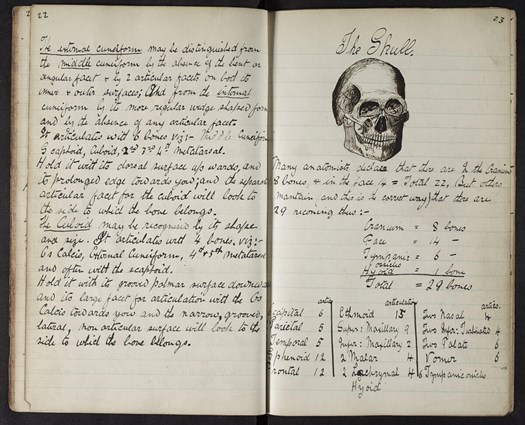 22
The external cuneiform may be distinguished from
the middle cuneiform by the absence of the bent or
angular facet & by 2 articular facets on both its
inner & outer surfaces; And from the internal
cuneiform by its more regular wedge shaped form
and by the absence of any articular facets.
It articulates with 6 bones viz:- Middle Cuneiform
Scaphoid, Cuboid, 2nd 3rd 4th Metatarsal.
Hold it with its dorsal surface upwards, and
its prolonged edge towards you; and the separate
articular facet for the cuboid will look to
the side to which the bone belongs.
The Cuboid may be recognised by its shape
and size. It articulates with 4 bones, viz:-
Os Calcis, External Cuneiform, 4th & 5th Metatarsal
and often with the scaphoid.
Hold it with its grooved palmar surface downward
and its large facet for articulation with the Os
Calcis towards you and the narrow, grooved,
lateral, non articular surface will look to the
side to which the bone belongs.
23
The Skull.
Many anatomists declare that there are In the Cranium
8 bones, & in the face 14 = Total 22, But others
maintain, and this is the correct way, that there are
29 reconing thus:-
Cranium = 8 bones
Face = 14 -
Tympanic ossicles = 6 -
Hyoid = 1 bone
Total = 29 bones
artic articulation artic.
Occipital 6 Ethmoid 15 Two Nasal 4
Parietal 5 Super: Maxillary 9 Two Infer: Turbinated 4
Temporal 5 Infer: Maxillary 2 Two Palate 6
Sphenoid 12 2 Malar 4 Vomer 6
Frontal 12 2 Lachrymal 4 6 Tympanic ossicles
Hyoid